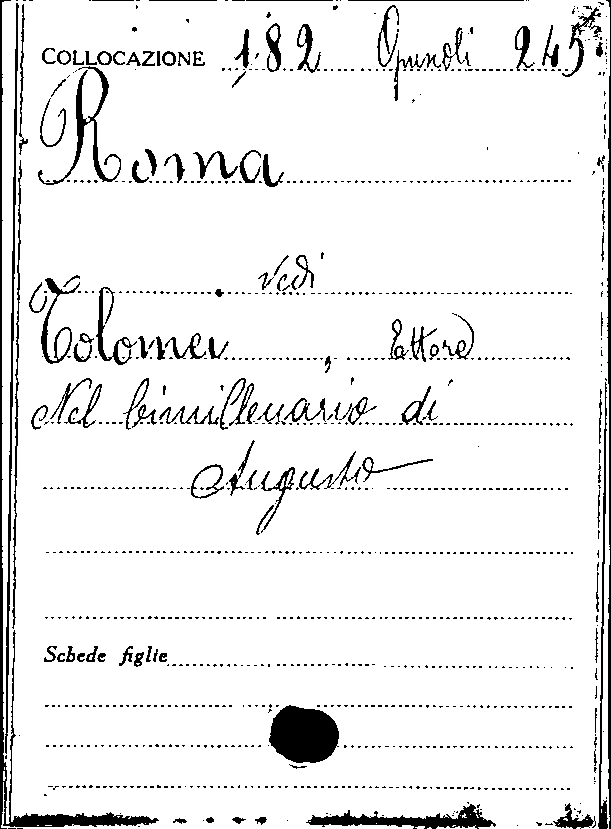 COLLOCAZIONE 182 Opuscoli 245
Roma
vedi
Tolomei, Ettore
Nel bimillenario di
Augusto
Schede figlie